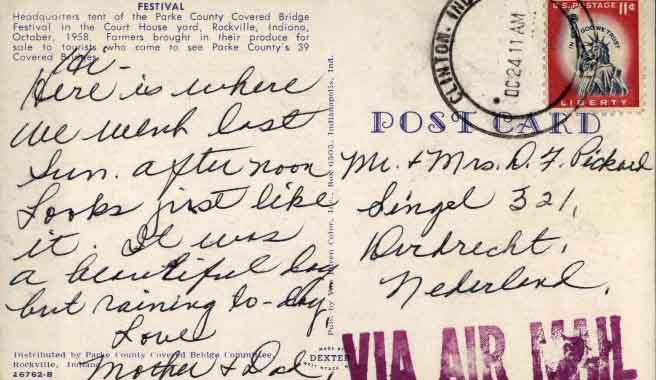 FESTIVAL
Headquarters tent of the Parke County Covered Bridge
Festival in the Court House yard, Rockville, Indiana,
October, 1958. Farmers brought in their produce for
sale to tourists who come to see Parke County's 39
Covered Bridges.
Hi-
Here is where
we went last
Sun. afternoon
Looks just like
it. It was
a beautiful day
but raining to-day,
Love
Mother & Dad,
Distributed by Parke County Covered Bridge Committee,
Rockville, Indiana
26762-B
Box 6503, Indianapolis, Ind.
MADE BY
DEXTER
WEST NYACK, N.Y.
CLINTON, IND
OCT 24 11 AM
U.S. POSTAGE 11¢
IN GOD WE TRUST
LIBERTY
POST CARD
Mr. & Mrs. D. F. Pickard
Singel 321,
Dordrecht,
Nederland,
VIA AIR MAIL